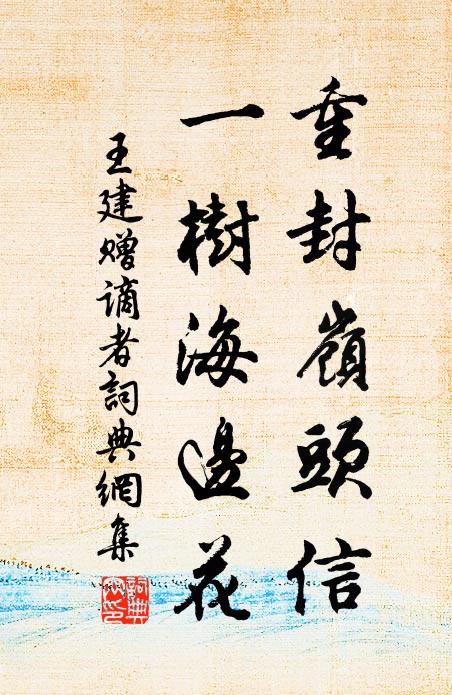 重封嶺頭信
一樹海邊花
王建贈謫者詞典網集